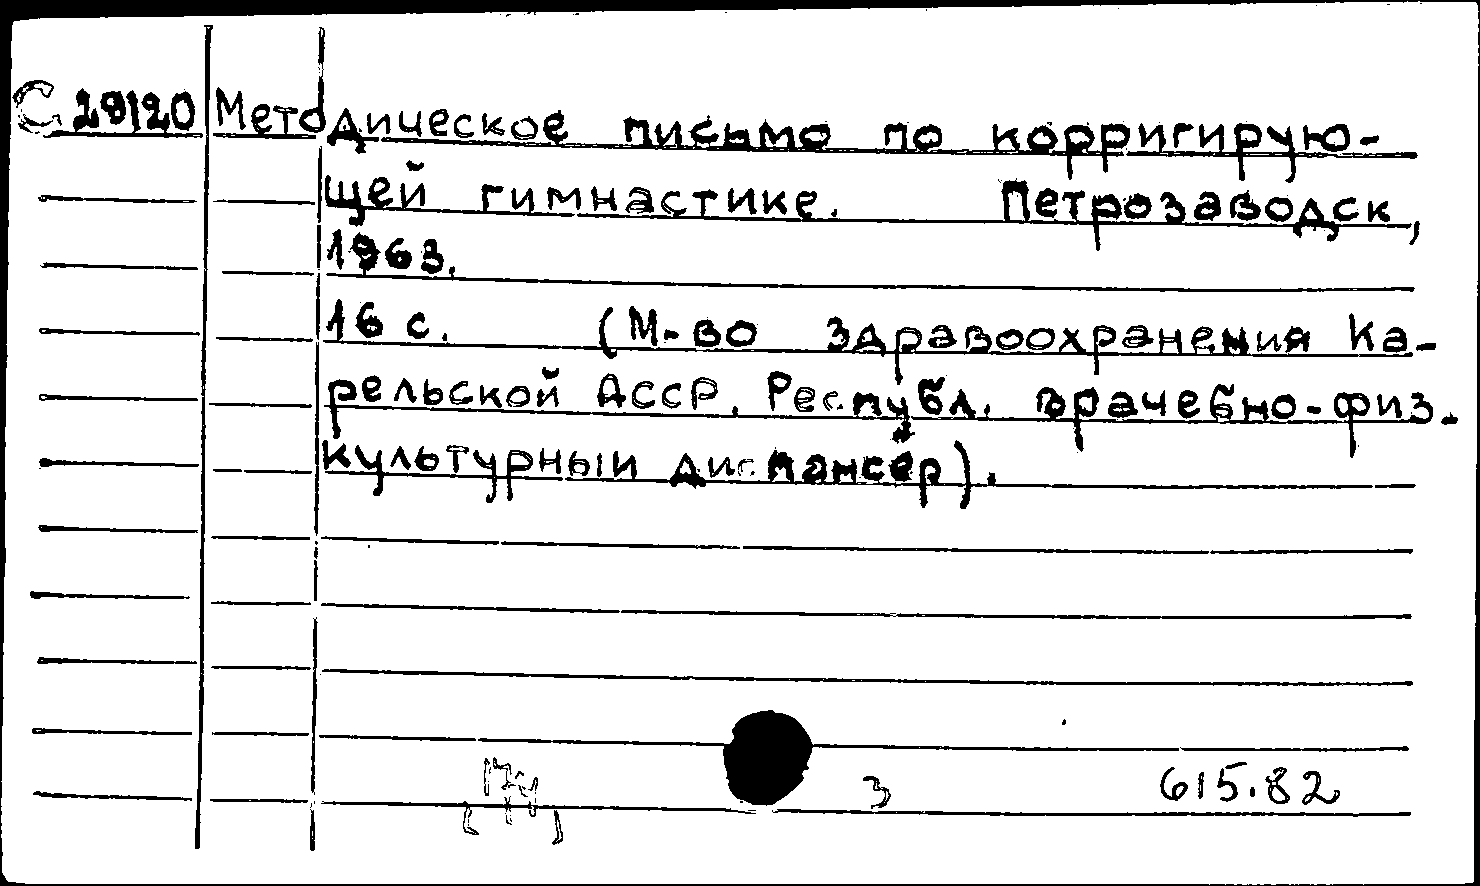 С 29120 Методическое письмо по корригирую-
щей гимнастике. Петрозаводск,
1963.
16 с. (М-во здравоохранения Ка-
рельской АССР. Республ. врачебно-физ.
культурный диспансер).
3 615.82